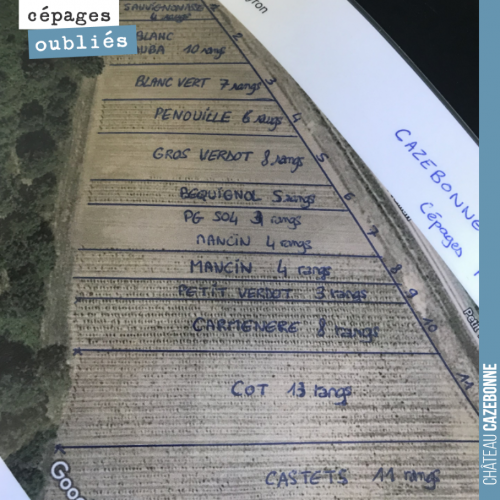 cépages
oubliés
4 rangs
BLANC
AUBA 10 rangs
BLANC VERT 7 rangs
PENOUILLE 6 rangs
GROS VERDOT 8 rangs
BEQUIGNOL 5 rangs
PG SO4 3 rangs
MANCIN 4 rangs
MANCIN 4 rangs
PETIT VERDOT 3 rangs
CARMENERE 8 rangs
COT 13 rangs
CASTETS 11 rangs
2
3
4
5
6
7
8
9
10
11
CAZEBONNE
Cépages
Goo
CHÂTEAU CAZEBONNE